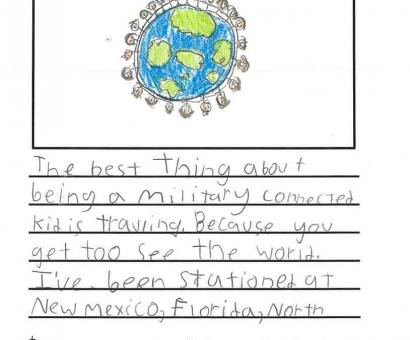 The best thing about
being a military connected
kid is travling. Because you
get too see the world.
I've been stationed at
New Mexico, Florida, North